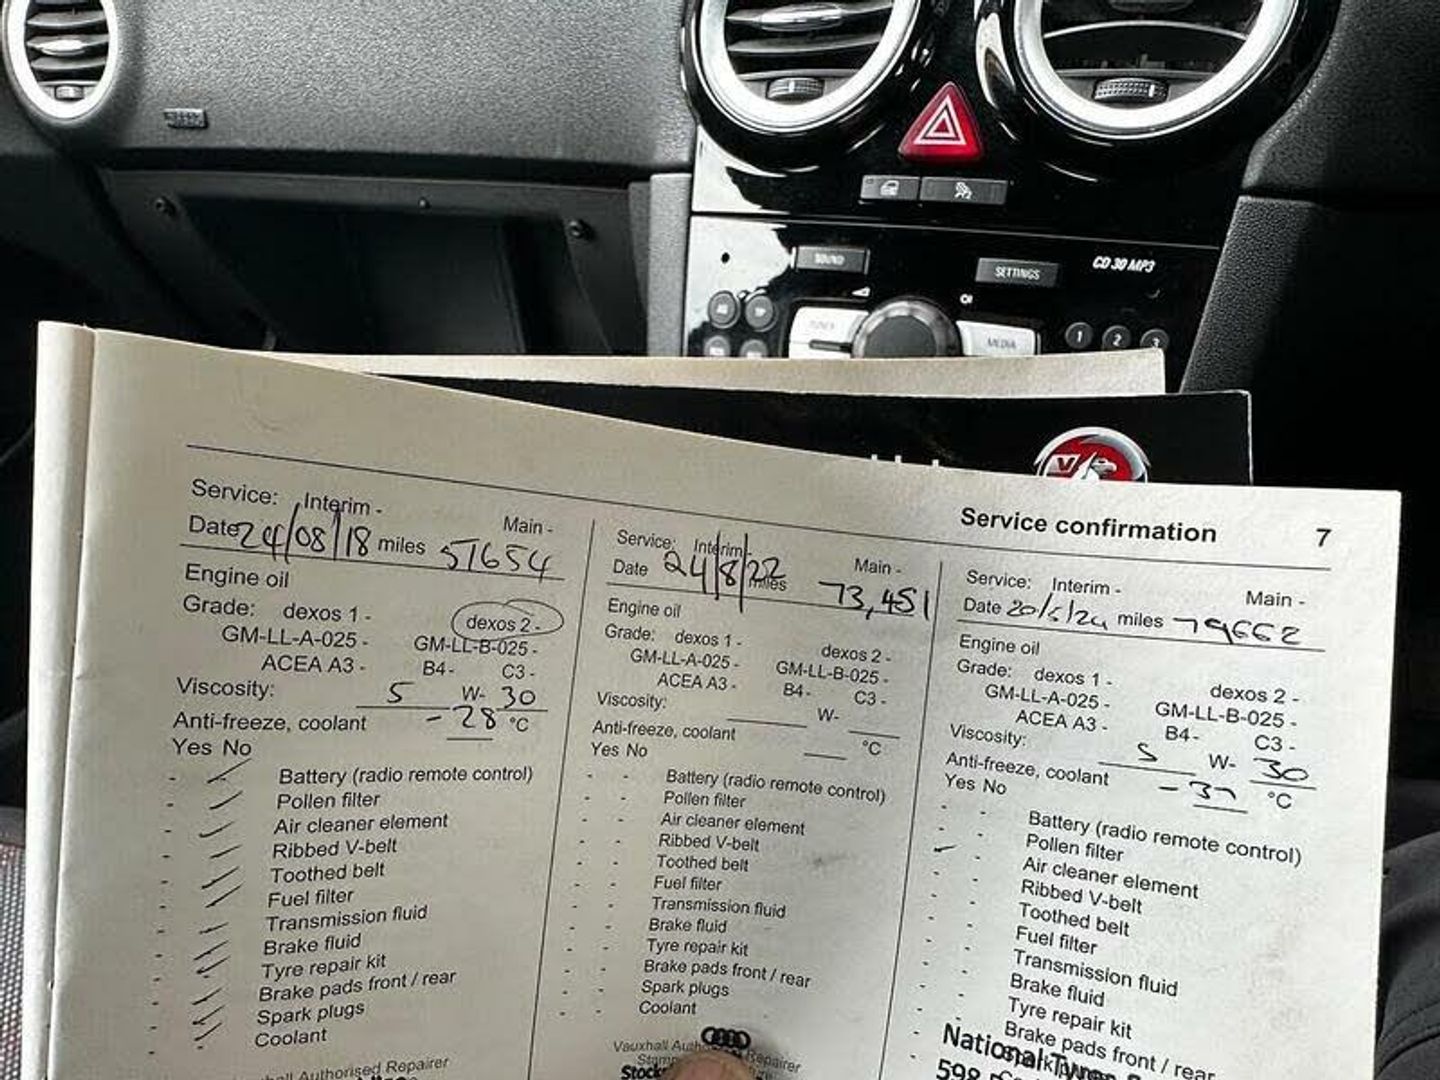 SOUND
SETTINGS
CD 30 MP3
TUNER
MEDIA
1 2 3
Service confirmation 7
Service: Interim - Main -
Date 24/08/18 miles 51654
Engine oil
Grade: dexos 1 - dexos 2 -
GM-LL-A-025 - GM-LL-B-025 -
ACEA A3 - B4 - C3 -
Viscosity: 5 W- 30
Anti-freeze, coolant - 28 °C
Yes No
- Battery (radio remote control)
- Pollen filter
- Air cleaner element
- Ribbed V-belt
- Toothed belt
- Fuel filter
- Transmission fluid
- Brake fluid
- Tyre repair kit
- Brake pads front / rear
- Spark plugs
- Coolant
Authorised Repairer
Service: Interim - Main -
Date 24/8/22 miles 73,451
Engine oil
Grade: dexos 1 - dexos 2 -
GM-LL-A-025 - GM-LL-B-025 -
ACEA A3 - B4 - C3 -
Viscosity: W-
Anti-freeze, coolant °C
Yes No
- - Battery (radio remote control)
- - Pollen filter
- - Air cleaner element
- - Ribbed V-belt
- - Toothed belt
- - Fuel filter
- - Transmission fluid
- - Brake fluid
- - Tyre repair kit
- - Brake pads front / rear
- - Spark plugs
- - Coolant
Vauxhall Authorised Repairer
Service: Interim - Main -
Date 20/5/24 miles 79662
Engine oil
Grade: dexos 1 - dexos 2 -
GM-LL-A-025 - GM-LL-B-025 -
ACEA A3 - B4 - C3 -
Viscosity: 5 W- 30
Anti-freeze, coolant - 37 °C
Yes No
- - Battery (radio remote control)
- Pollen filter
- - Air cleaner element
- - Ribbed V-belt
- - Toothed belt
- - Fuel filter
- - Transmission fluid
- - Brake fluid
- - Tyre repair kit
- - Brake pads front / rear
National Tyres
598